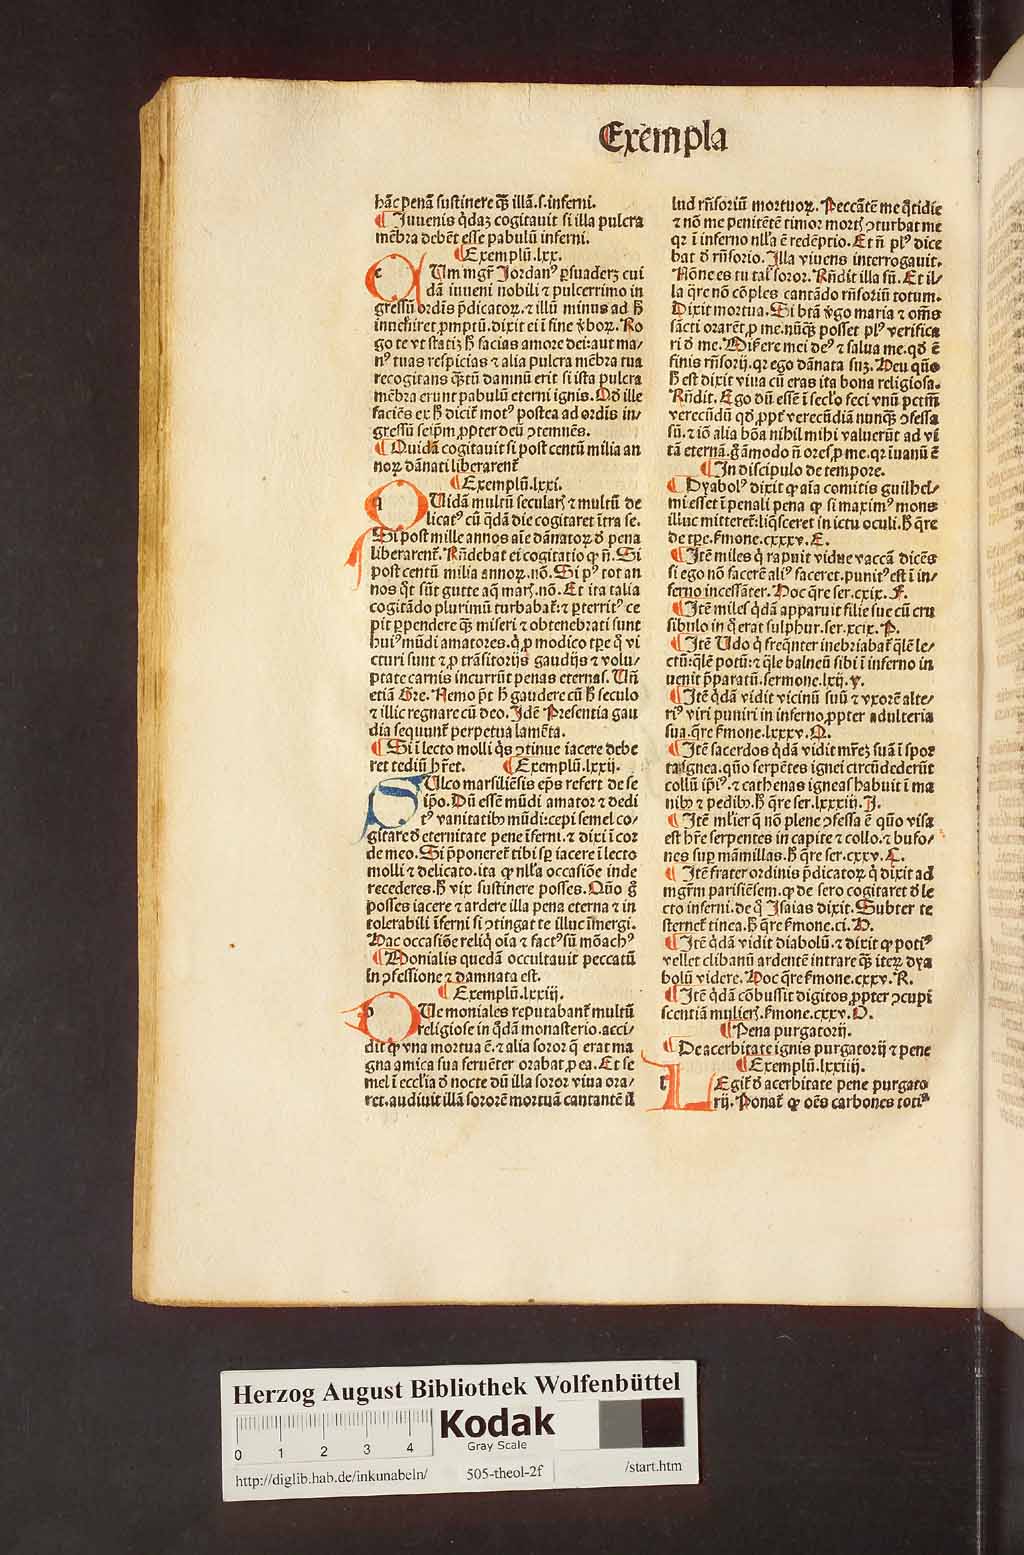 Exempla
hāc penā sustinere q̄ illā.s.inferni.
¶ Iuuenis q̇daꝫ cogitauit si illa pulcra
mēbra debēt esse pabulū inferni.
¶ Exemplū.lxx.
CUm mgr̄ Iordanꝰ ꝑsuaderꝫ cui
dā iuueni nobili ⁊ pulcerrimo in
gressū ordis p̄dicatoꝝ.⁊ illū minus ad h̄
inneniret ꝓmptū.dixit ei ī fine ꝟboꝝ.Ro
go te vt statiꝫ h̄ facias amore dei:aut ma/
nꝰ tuas respicias ⁊ alia pulcra mēbra tua
recogitans q̄tū damnū erit si ista pulcra
mēbra erunt pabulū eterni ignis. Qd̄ ille
faciēs ex h̄ dicit̄ motꝰ postea ad ordis in/
gressū seipm̄ ꝓpter deū ꝯtemnēs.
¶ Quidā cogitauit si post centū milia an
noꝝ dānati liberarent̄
¶ Exemplū.lxxi.
QUidā multū seculaꝝ ⁊ multū de
licatꝰ cū q̇dā die cogitaret ītra se.
Si post mille annos aīe dānatoꝝ d̄ pena
liberarent̄. Rn̄debat ei cogitatio ꝙ n̄. Si
post centū milia annoꝝ.nō. Si pꝰ tot an
nos q̇t sūt gutte aq̄ marꝭ.nō. Et ita talia
cogitādo plurimū turbabat̄:⁊ ꝑterritꝰ ce
pit ꝑpendere q̄ miseri ⁊ obtenebrati sunt
huiꝰ mūdi amatores.q̇ ꝓ modico tꝑe q̊ vi
cturi sunt ⁊ ꝓ trāsitorijs gaudijs ⁊ volu/
ptate carnis incurrūt penas eternas. Un̄
etiā Gre. Nemo pt̄ h̄ gaudere cū h̄ seculo
⁊ illic regnare cū deo. Idē Presentia gau
dia sequunt̄ perpetua lamēta.
¶ Si ī lecto molli q̇s ꝯtinue iacere debe
ret tediū hr̄et. ¶ Exemplū.lxxij.
SUlco marsiliēsis ep̄s refert de se
ip̄o. Dū essē mūdi amator ⁊ dedi
tꝰ vanitatibꝫ mūdi:cepi semel co/
gitare d̄ eternitate pene īferni.⁊ dixi ī cor
de meo. Si p̄poneret̄ tibi sꝑ iacere ī lecto
molli ⁊ delicato.ita ꝙ nll̄a occasiōe inde
recederes.h̄ vix sustinere posses. Quō ḡ
posses iacere ⁊ ardere illa pena eterna ⁊ in
tolerabili īferni si ꝯtingat te illuc īmergi.
Hac occasiōe reliq̇ oīa ⁊ factꝰ sū mōachꝰ
¶ Monialis quedā occultauit peccatū
in ꝯfessione ⁊ damnata est.
¶ Exemplū.lxxiij.
DUe moniales reputabant̄ multū
religiose in q̇dā monasterio.acci/
dit ꝙ vna mortua ē.⁊ alia soror q̄ erat ma
gna amica sua feruēter orabat ꝓ ea. Et se
mel ī eccl'ia d̄ nocte dū illa soror viua ora/
ret.audiuit illā sororē mortuā cantantē il
lud rn̄soriū mortuoꝝ. Peccātē me q̊tidie
⁊ nō me penitētē timor mortꝭ ꝯturbat me
qꝛ ī inferno nll'a ē redēptio. Et n̄ plꝰ dice
bat d̄ rn̄sorio. Illa viuens interrogauit.
Nōne es tu tal' soror. Rn̄dit illa sū. Et il/
la q̄re nō cōples cantādo rn̄soriū totum.
Dixit mortua. Si btā ꝟgo maria ⁊ om̄s
sācti orarēt ꝓ me.nūq̄ posset plꝰ verifica
ri d̄ me. Miẜere mei deꝰ ⁊ salua me.qd̄ ē
finis rn̄sorij.qꝛ ego dānata suꝫ. Heu quō
h̄ est dixit viua cū eras ita bona religiosa.
Rn̄dit. Ego dū essē ī secl'o feci vnū pctm̄
verecūdū qd̄ ꝓpt̄ verecūdiā nunq̄ ꝯfessa
sū.⁊ iō alia bōa nihil mihi valuerūt ad vi
tā eternā.ḡ āmodo n̄ ores ꝓ me.qꝛ iuanū ē
¶ In discipulo de tempore.
¶ Dyabolꝰ dixit ꝙ aīa comitis guilhel/
mi esset ī penali pena ꝙ si maximꝰ mons
illuc mitteret̄:liq̄sceret in ictu oculi.h̄ q̄re
de tꝑe.ẜmone.cxxxv.E.
¶ Itē miles q̇ rapuit vidue vaccā dicēs
si ego nō facerē aliꝰ faceret.punitꝰ est ī in/
ferno incessāter. Hoc q̄re ser.cxix. F.
¶ Itē miles q̇dā apparuit filie sue cū cru
sibulo in q̊ erat sulphur.ser.xcix.P.
¶ Itē Udo q̇ freq̄nter inebriabat̄ q̄lē le/
ctū:q̄lē potū:⁊ q̄le balneū sibi ī inferno in
uenit p̄paratū.sermone.lxij.v.
¶ Itē q̇dā vidit vicinū suū ⁊ vxorē alte/
riꝰ viri puniri in inferno ꝓpter adulteria
sua.q̄re ẜmone.lxxxv.Q.
¶ Itē sacerdos q̇dā vidit mr̄eꝫ suā ī spor
ta ignea.quō serpētes ignei circūdederūt
collū ip̄iꝰ.⁊ cathenas igneas habuit ī ma
nibꝫ ⁊ pedibꝫ.h̄ q̄re ser.lxxxiij. J.
¶ Itē ml'ier q̄ nō plene ꝯfessa ē quō visa
est hr̄e serpentes in capite ⁊ collo.⁊ bufo/
nes suꝑ māmillas.h̄ q̄re ser.cxxv.C.
¶ Itē frater ordinis p̄dicatoꝝ q̇ dixit ad
mgr̄m parisiēsem.ꝙ de sero cogitaret d̄ le
cto inferni.de q̊ Isaias dixit. Subter te
sternet̄ tinea.h̄ q̄re ẜmone.ci.H.
¶ Itē q̇dā vidit diabolū.⁊ dixit ꝙ potiꝰ
vellet clibanū ardentē intrare q̄ iteꝝ dya
bolū videre. Hoc q̄re ẜmone.cxxv.R.
¶ Itē q̇dā cōbussit digitos ꝓpter ꝯcupi
scentiā mulieꝝ.ẜmone.cxxv.O.
¶ Pena purgatorij.
¶ De acerbitate ignis purgatorij ⁊ pene
¶ Exemplū.lxxiiij.
LEgit̄ d̄ acerbitate pene purgato
rij. Ponat̄ ꝙ oēs carbones totiꝰ
Herzog August Bibliothek Wolfenbüttel
Kodak
Gray Scale
0 1 2 3 4
http://diglib.hab.de/inkunabeln/ 505-theol-2f /start.htm